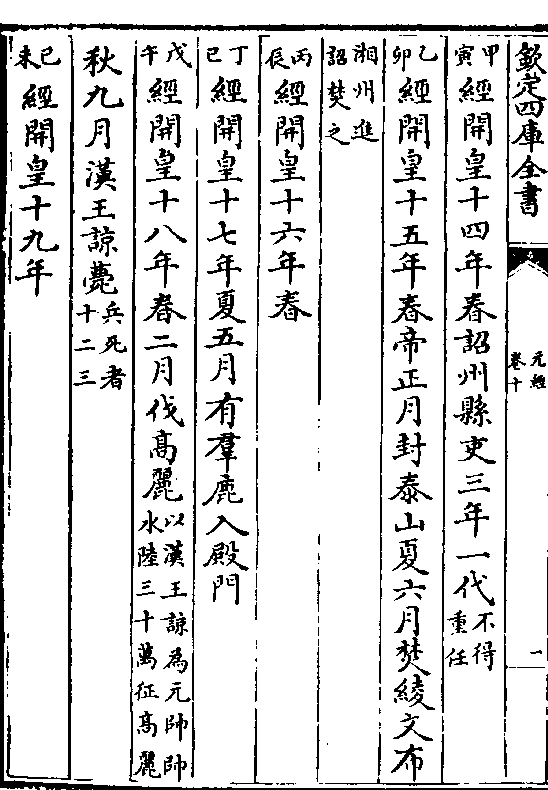 欽定四庫全書 元經卷十 一
甲寅經開皇十四年春詔州縣吏三年一代不得重任
乙卯經開皇十五年春帝正月封泰山夏六月焚綾文布
湘州進詔焚之
丙辰經開皇十六年春
丁巳經開皇十七年夏五月有羣鹿入殿門
戊午經開皇十八年春二月伐高麗以漢王諒為元帥帥水陸三十萬征高麗
秋九月漢王諒薨兵死者十二三
己未經開皇十九年